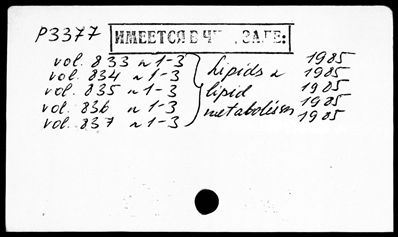 P3377 ИМЕЕТСЯ В Ч ЗАЛЕ:
vol. 833 n 1-3 1985
vol. 834 n 1-3 Lipids n 1985
vol. 835 n 1-3 lipid 1985
vol. 836 n 1-3 metabolism 1985
vol. 837 n 1-3 1985